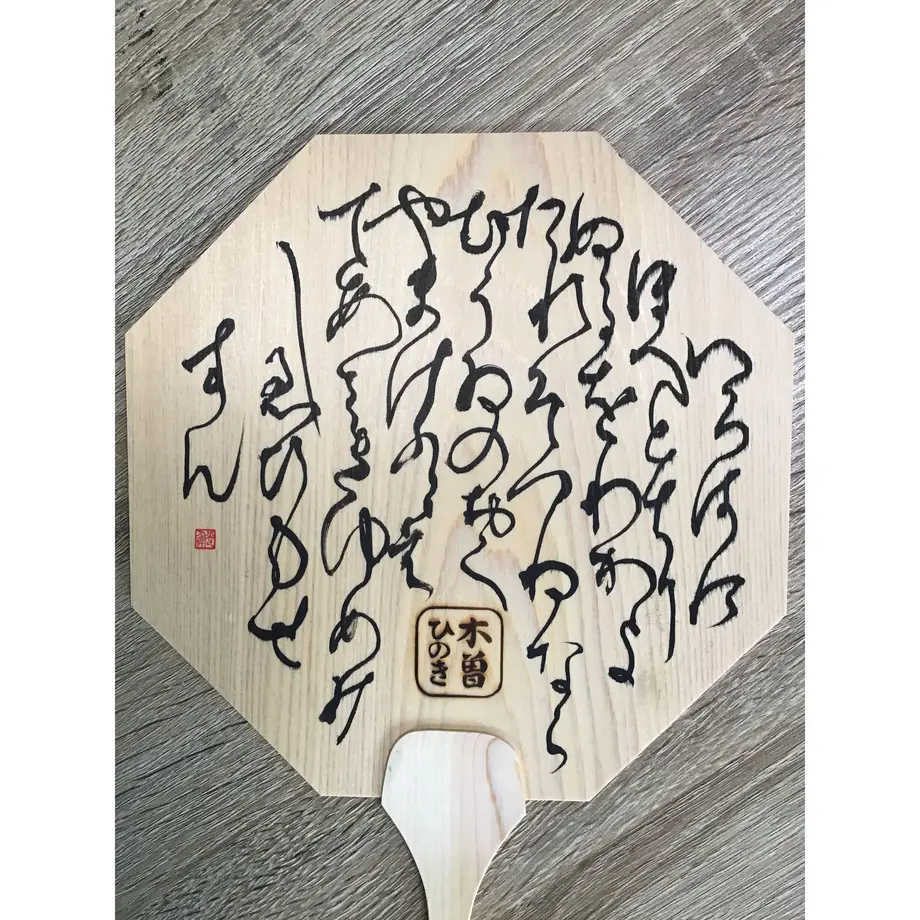 いろはに
ほへとちり
ぬるをわかよ
たれそつねなら
むうゐのおく
やまけふこえ
てあさきゆめみ
しゑひもせ
すん
木曽
ひのき